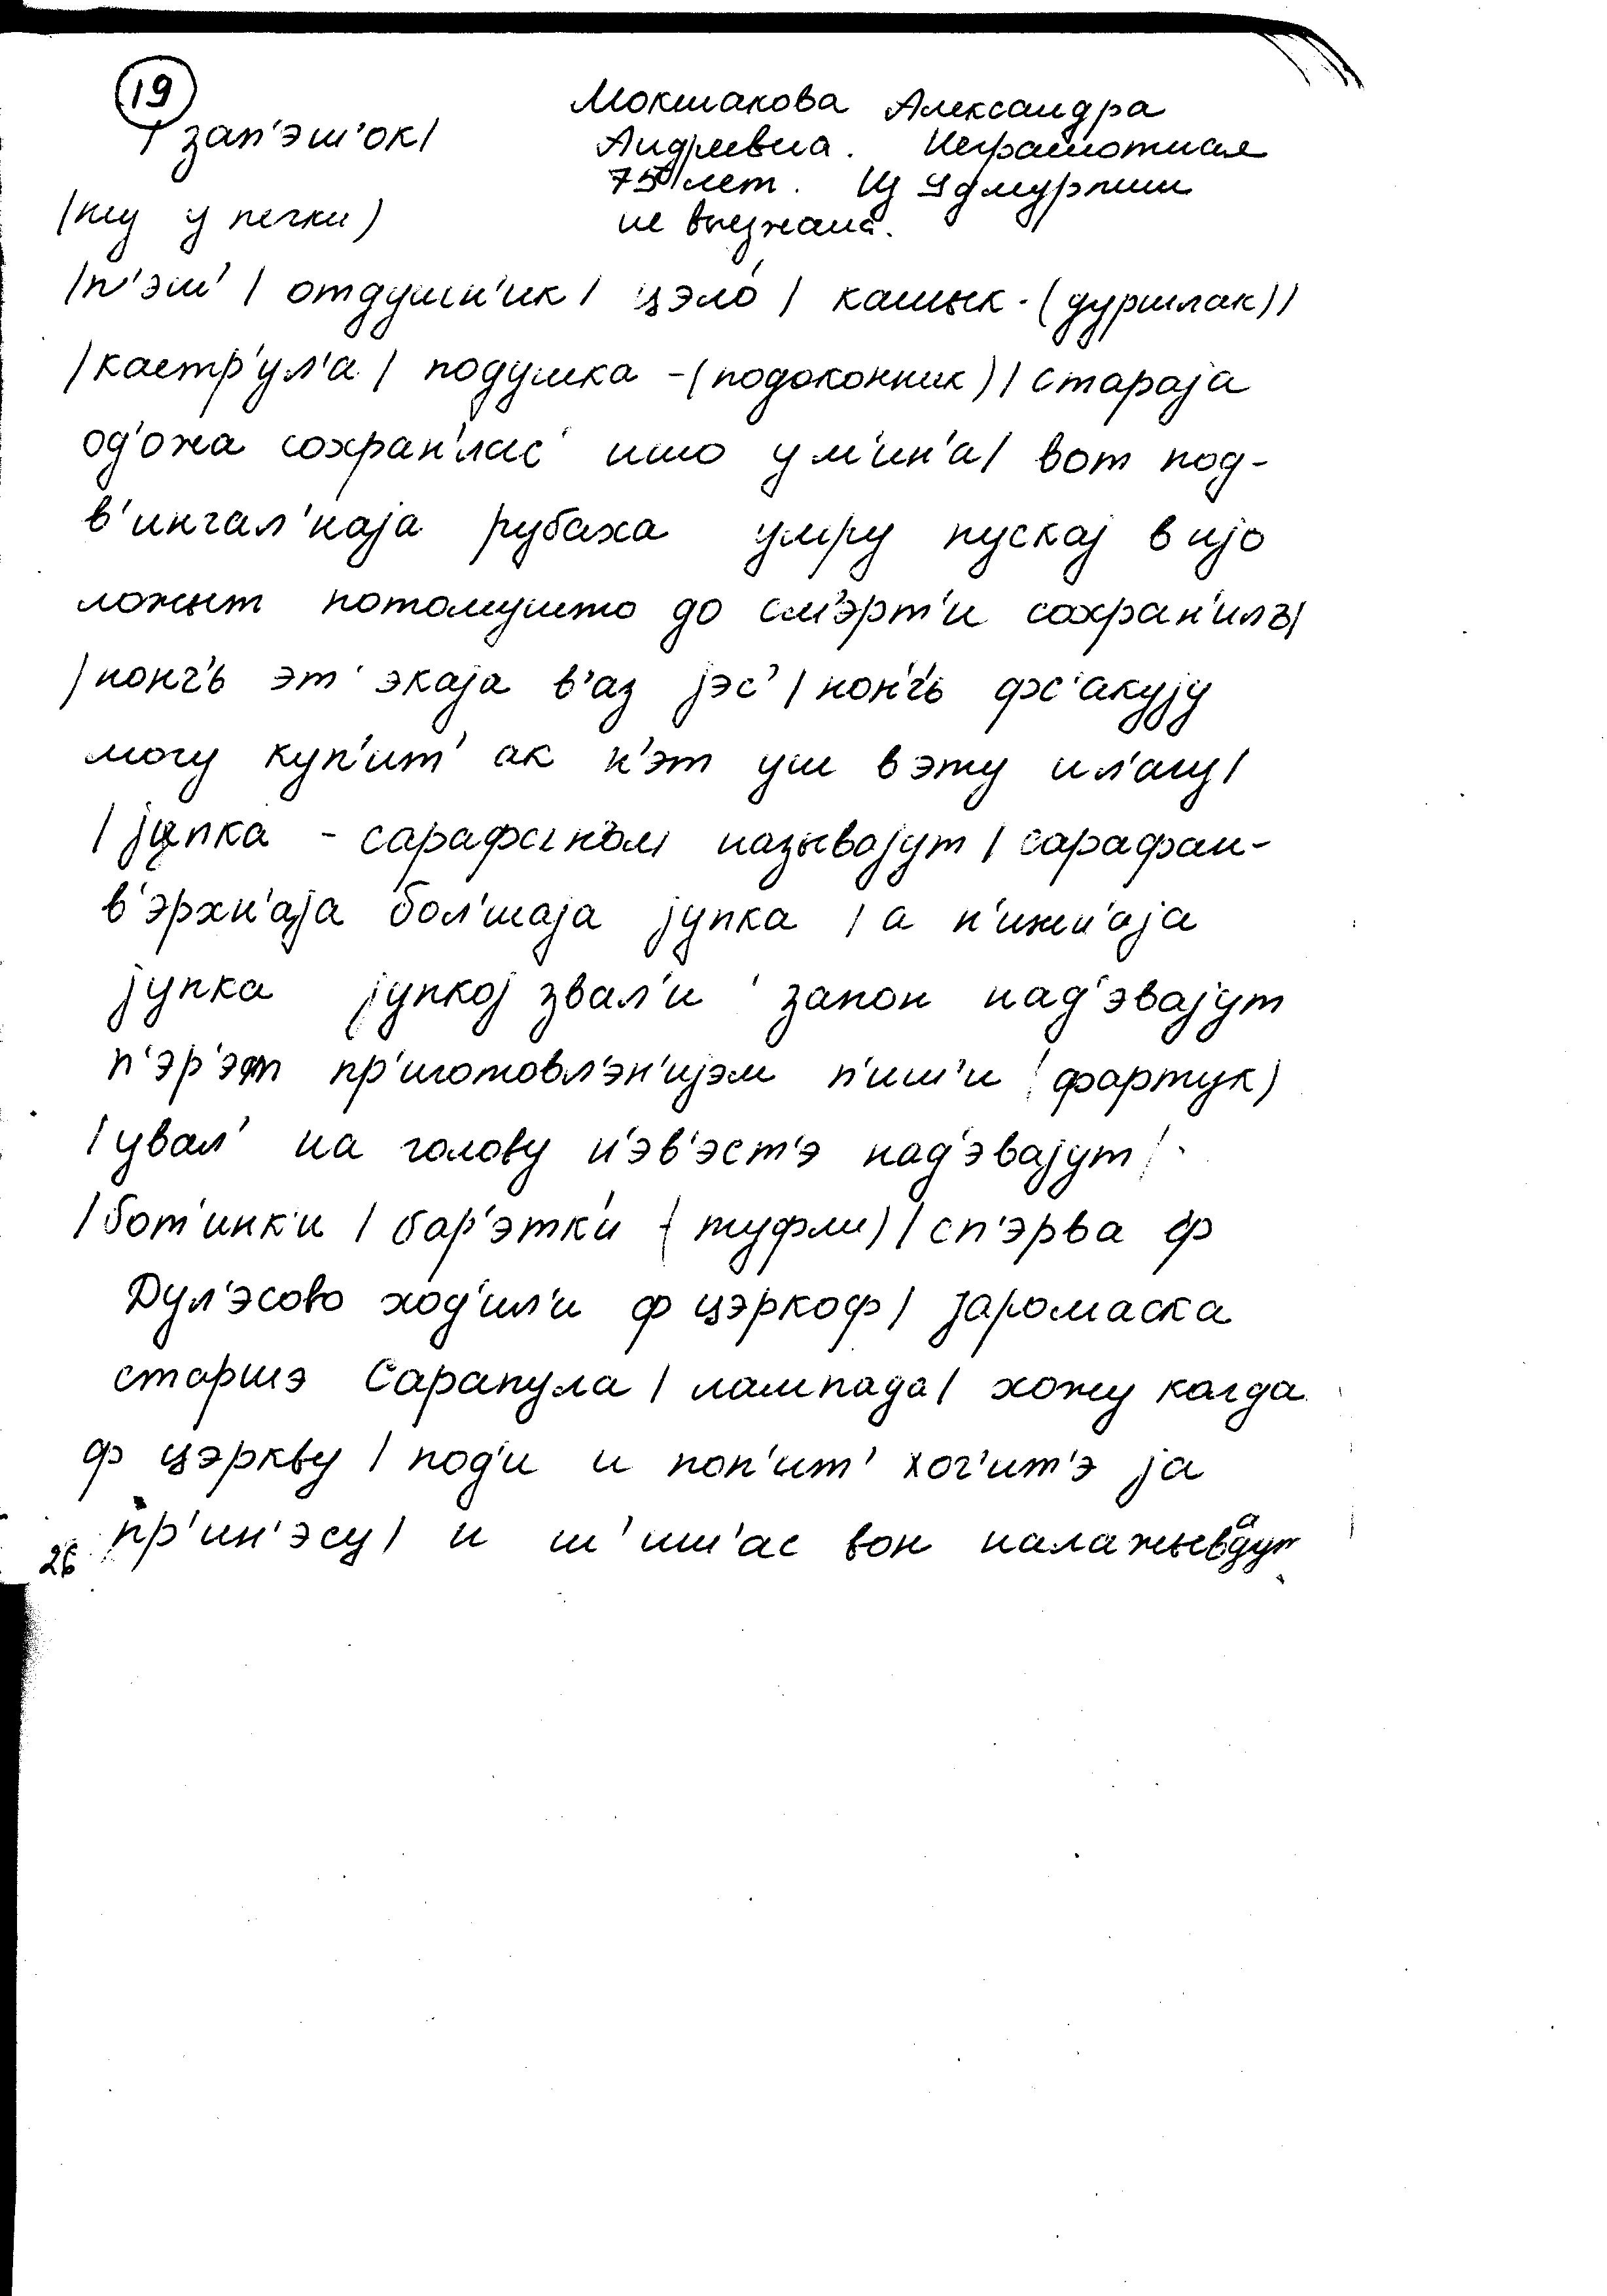 19
/ зап'эш'ок/
Мокшакова Александра
Андреевна. Неграмотная
75 лет. Из Удмуртии
не выезжала.
у печки)
/п'эш' / отдушн'ик / цэло́ / кашык - (дуршлак)/
/кастр'ул'а / подушка - (подоконник) / стараја
од'ожа сохран'лас' ишо у м'ин'а / вот под-
в'ингал'наја рубаха умру пускај в ијо
ложыт потомушто до см'эрт'и сохран'илъ/
/нонч'ь эт'экаја в'аз јэс' / нонч'ь фс'акују
могу куп'ит' ак н'эт уш в эту л'агу/
/јупка - сарафаном называјут / сарафан-
в'эрхн'аја бол'шаја јупка / а н'ижн'аја
јупка јупкој звал'и / запон над'эвајут
п'эр'эт пр'иготовл'эн'ијэм п'иш'и (фартук)
/увал' на голову н'эв'эст'э над'эвајут /
/бот'инк'и / бар'этк'и - (туфли) / сп'эрва ф
Дул'эсово ход'ил'и ф цэркоф / јаромаска
старшэ Сарапула / лампада / хожу когда
ф цэркву / под'и и поп'ит' хоч'ит'э ја
пр'ин'эсу / и ш'иш'ас вон налажывајут
26